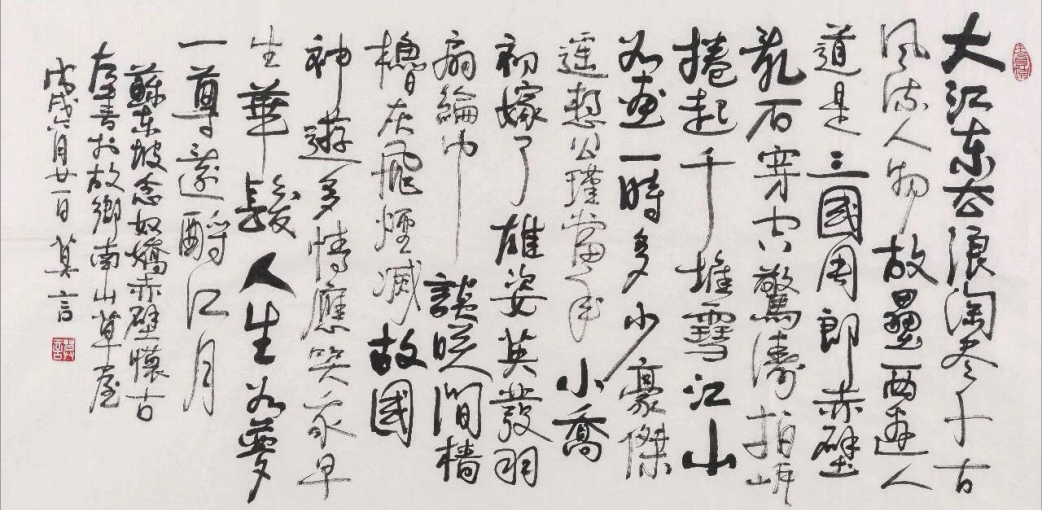 大江东去浪淘尽千古
风流人物故壘西邊人
道是三國周郎赤壁
亂石穿空驚濤拍岸
捲起千堆雪江山
如画一時多少豪傑
遥想公瑾當年小喬
初嫁了雄姿英發羽
扇綸巾談笑間檣
櫓灰飛煙滅故國
神遊多情應笑我早
生華髮人生如夢
一尊還酹江月
蘇东坡念奴嬌赤壁懷古
左書於故鄉南山草屋
戊戌六月廿一日莫言
莫言